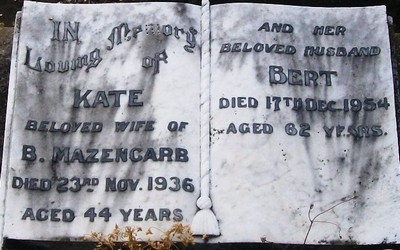 IN
Loving Memory
of
KATE
BELOVED WIFE OF
B. MAZENGARB
DIED 23RD NOV. 1936
AGED 44 YEARS
AND HER
BELOVED HUSBAND
BERT
DIED 17TH DEC. 1954
AGED 62 YEARS.